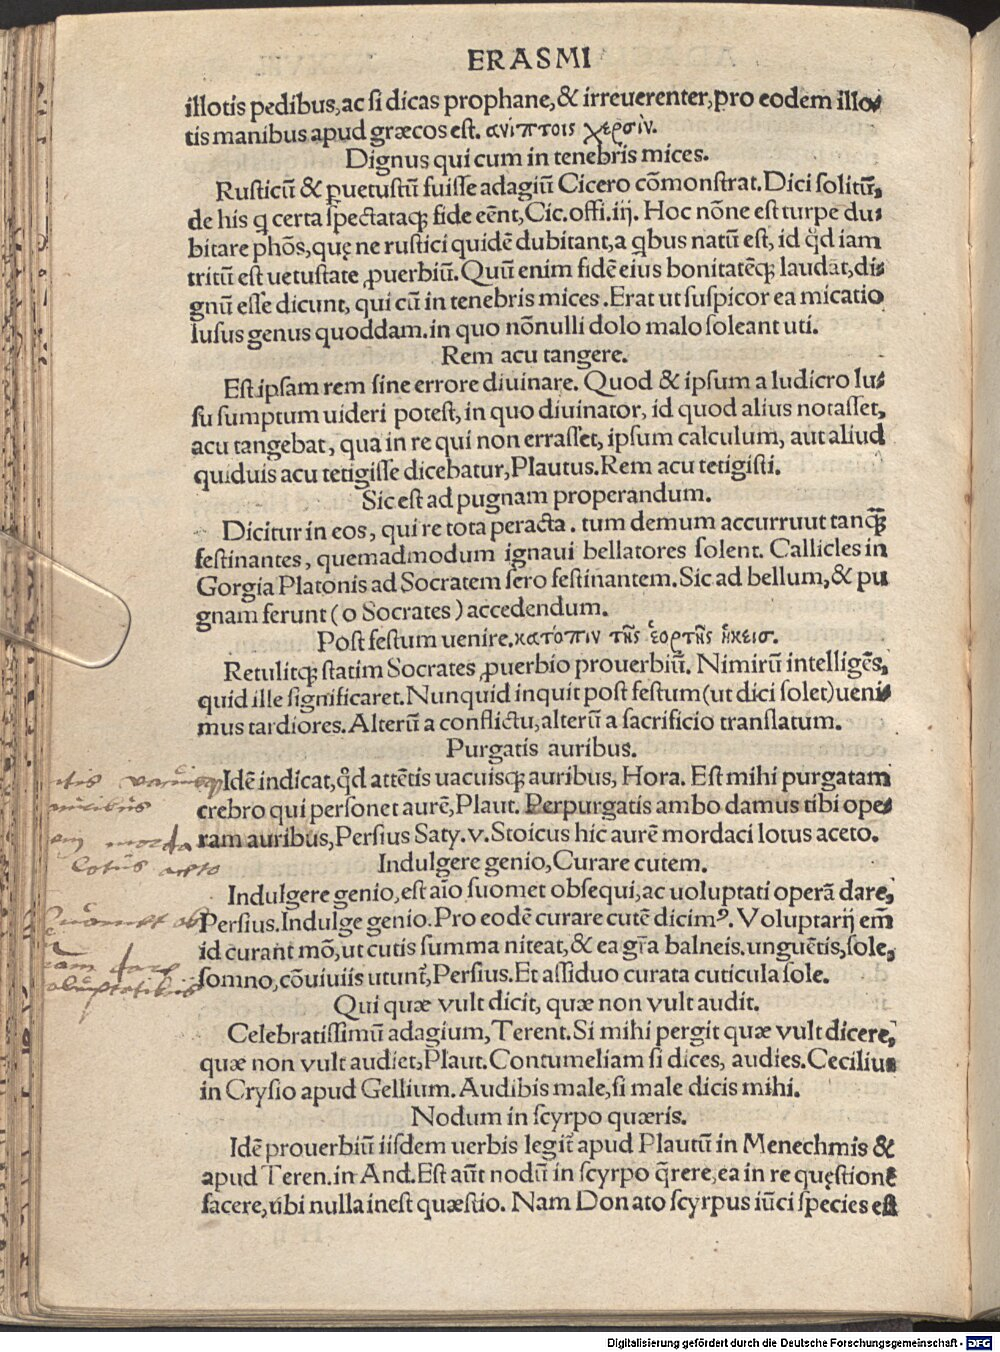 ERASMI
illotis pedibus, ac si dicas prophane, & irreuerenter, pro eodem illo-
tis manibus apud græcos est. ανίπτοις χερσὶν.
Dignus qui cum in tenebris mices.
Rusticū & ꝑuetustū fuisse adagiū Cicero cōmonstrat. Dici solitū,
de his q̨ certa spectataq̨ fide eēnt, Cic. offi. iij. Hoc nōne est turpe du-
bitare phōs, quę ne rustici quidē dubitant, a qbus natū est, id qd iam
tritū est uetustate ꝓuerbiū. Quū enim fidē eius bonitatēq̨ laudāt, di-
gnū esse dicunt, qui cū in tenebris mices. Erat ut suspicor ea micatio
lusus genus quoddam. in quo nōnulli dolo malo soleant uti.
Rem acu tangere.
Est ipsam rem sine errore diuinare. Quod & ipsum a ludicro lu-
su sumptum uideri potest, in quo diuinator, id quod alius notasset,
acu tangebat, qua in re qui non errasset, ipsum calculum, aut aliud
quiduis acu tetigisse dicebatur, Plautus. Rem acu tetigisti.
Sic est ad pugnam properandum.
Dicitur in eos, qui re tota peracta. tum demum accurruut tanꝙ̄
festinantes, quemadmodum ignaui bellatores solent. Callicles in
Gorgia Platonis ad Socratem sero festinantem. Sic ad bellum, & pu
gnam ferunt (o Socrates) accedendum.
Post festum uenire. κατόπιν τῆς ἑορτῆς ἥκεισ.
Retulitq̨ statim Socrates ꝓuerbio prouerbiū. Nimirū intelligēs,
quid ille significaret. Nunquid inquit post festum (ut dici solet) ueni-
mus tardiores. Alterū a conflictu, alterū a sacrificio translatum.
Purgatis auribus.
Idē indicat, qd attētis uacuisq̨ auribus, Hora. Est mihi purgatam
crebro qui personet aurē, Plaut. Perpurgatis ambo damus tibi ope-
ram auribus, Persius Saty. v. Stoicus hic aurē mordaci lotus aceto.
Indulgere genio, Curare cutem.
Indulgere genio, est aīo suomet obsequi, ac uoluptati operā dare,
Persius. Indulge genio. Pro eodē curare cutē dicimꝰ. Voluptarij em̄
id curant mō, ut cutis summa niteat, & ea gr̄a balneis. unguētis, sole,
somno, cōuiuiis utunt̃, Persius. Et assiduo curata cuticula sole.
Qui quæ vult dicit, quæ non vult audit.
Celebratissimū adagium, Terent. Si mihi pergit quæ vult dicere,
quæ non vult audiet, Plaut. Contumeliam si dices, audies. Cecilius
in Crysio apud Gellium. Audibis male, si male dicis mihi.
Nodum in scyrpo quæris.
Idē prouerbiū iisdem uerbis legit̃ apud Plautū in Menechmis &
apud Teren. in And. Est aūt nodū in scyrpo q̄rere, ea in re quęstionē
facere, ubi nulla inest quæstio. Nam Donato scyrpus iūci species est
lotus aceto
Digitalisierung gefördert durch die Deutsche Forschungsgemeinschaft - DFG